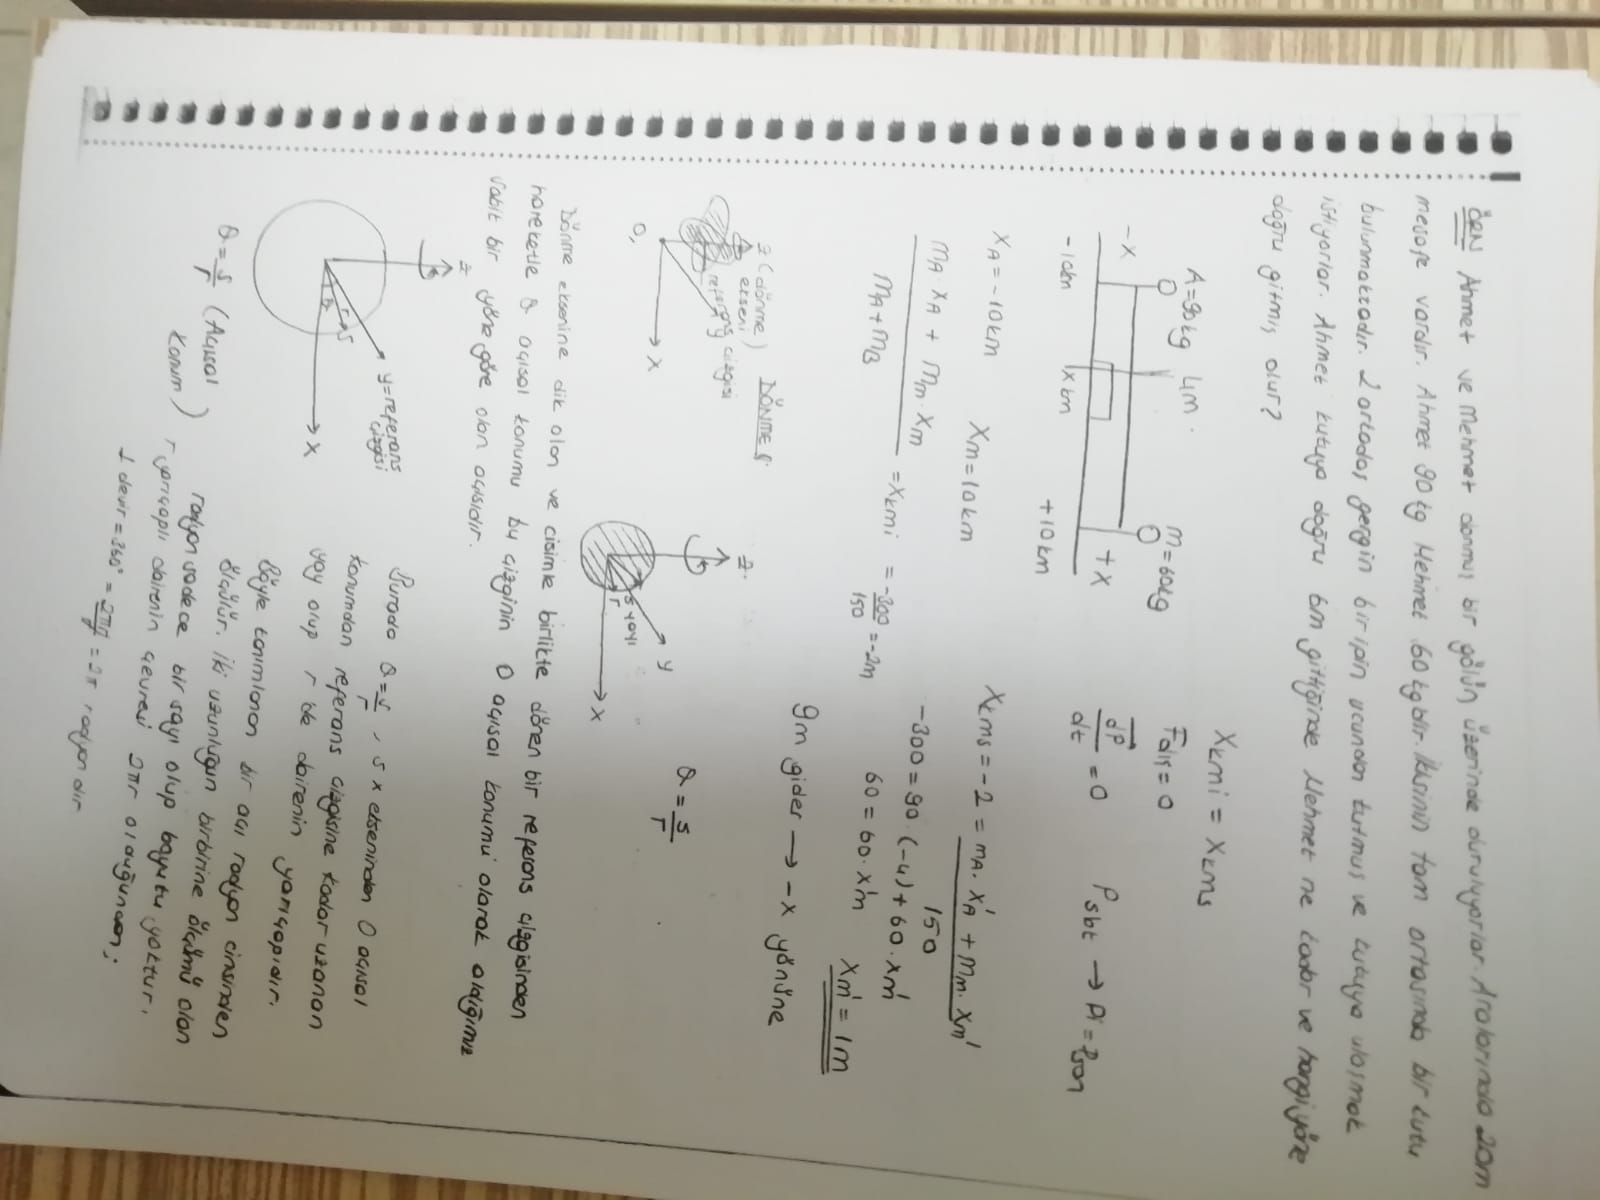 ÖRN Ahmet ve Mehmet donmuş bir gölün üzerinde duruluyorlar. Aralarında 20m
mesafe vardır. Ahmet 90 kg Mehmet 60 kg'dır. İkisinin tam ortasında bir kutu
bulunmaktadır. 2 arkadaş gergin bir ipin ucundan tutmuş ve kutuya ulaşmak
istiyorlar. Ahmet kutuya doğru 6m gittiğinde Mehmet ne kadar ve hangi yöne
doğru gitmiş olur?
A=90kg 4m
m=60kg
-x +x
-10km xkm +10km
Xkmi = Xkms
Fdış=0
dP/dt = 0 Psbt → Pi = Pson
XA=-10km Xm=10km
mA·XA + Mm·Xm / MA+MB = Xkmi = -300/150 = -2m
Xkms = -2 = mA·XA' + Mm·Xm' / 150
-300 = 90·(-4) + 60·Xm'
60 = 60·Xm' Xm' = 1m
9m gider → -x yönüne
DÖNME
z (dönme ekseni)
referans çizgisi
y
x
O,
z
y
s yayı
r
x
θ = s/r
Dönme eksenine dik olan ve cisimle birlikte dönen bir referans çizgisinden
hareketle θ açısal konumu bu çizginin 0 açısal konumu olarak aldığımız
sabit bir yöne göre olan açısıdır.
z
y=referans çizgisi
r s
θ
x
θ = s/r (Açısal konum)
Burada θ=s/r , s x ekseninden 0 açısal
konumdan referans çizgisine kadar uzanan
yay olup r'de dairenin yarıçapıdır.
Böyle tanımlanan bir açı radyan cinsinden
ölçülür. İki uzunluğun birbirine ölçümü olan
radyan sadece bir sayı olup boyutu yoktur.
r yarıçaplı dairenin çevresi 2πr olduğundan;
1 devir = 360° = 2πr/r = 2π radyan dır.